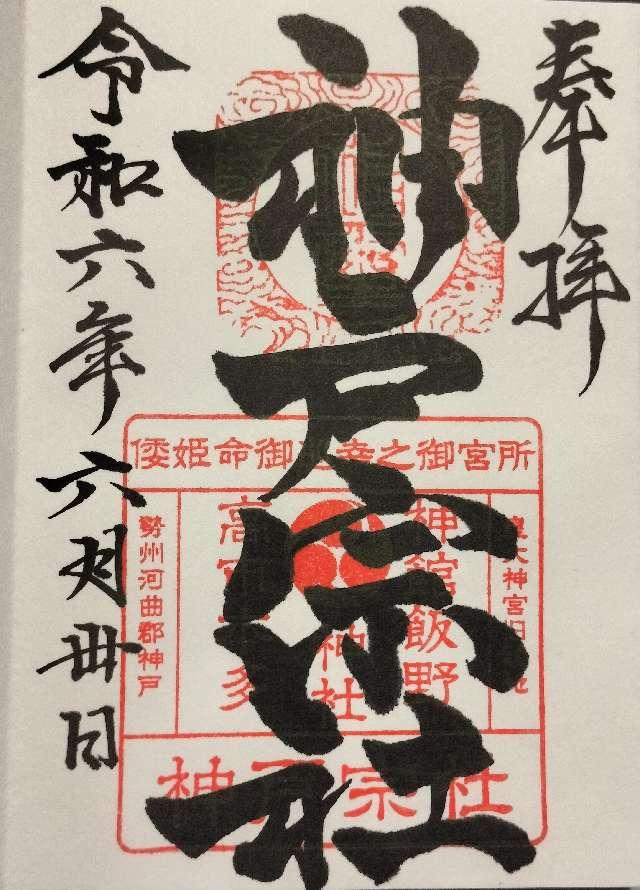 奉拝
神戸宗社
令和六年六月卅日
倭姫命御 幸之御宮所
神館飯野
高 多
神社
勢州河曲郡神戸
大神宮旧 地
神戸宗社